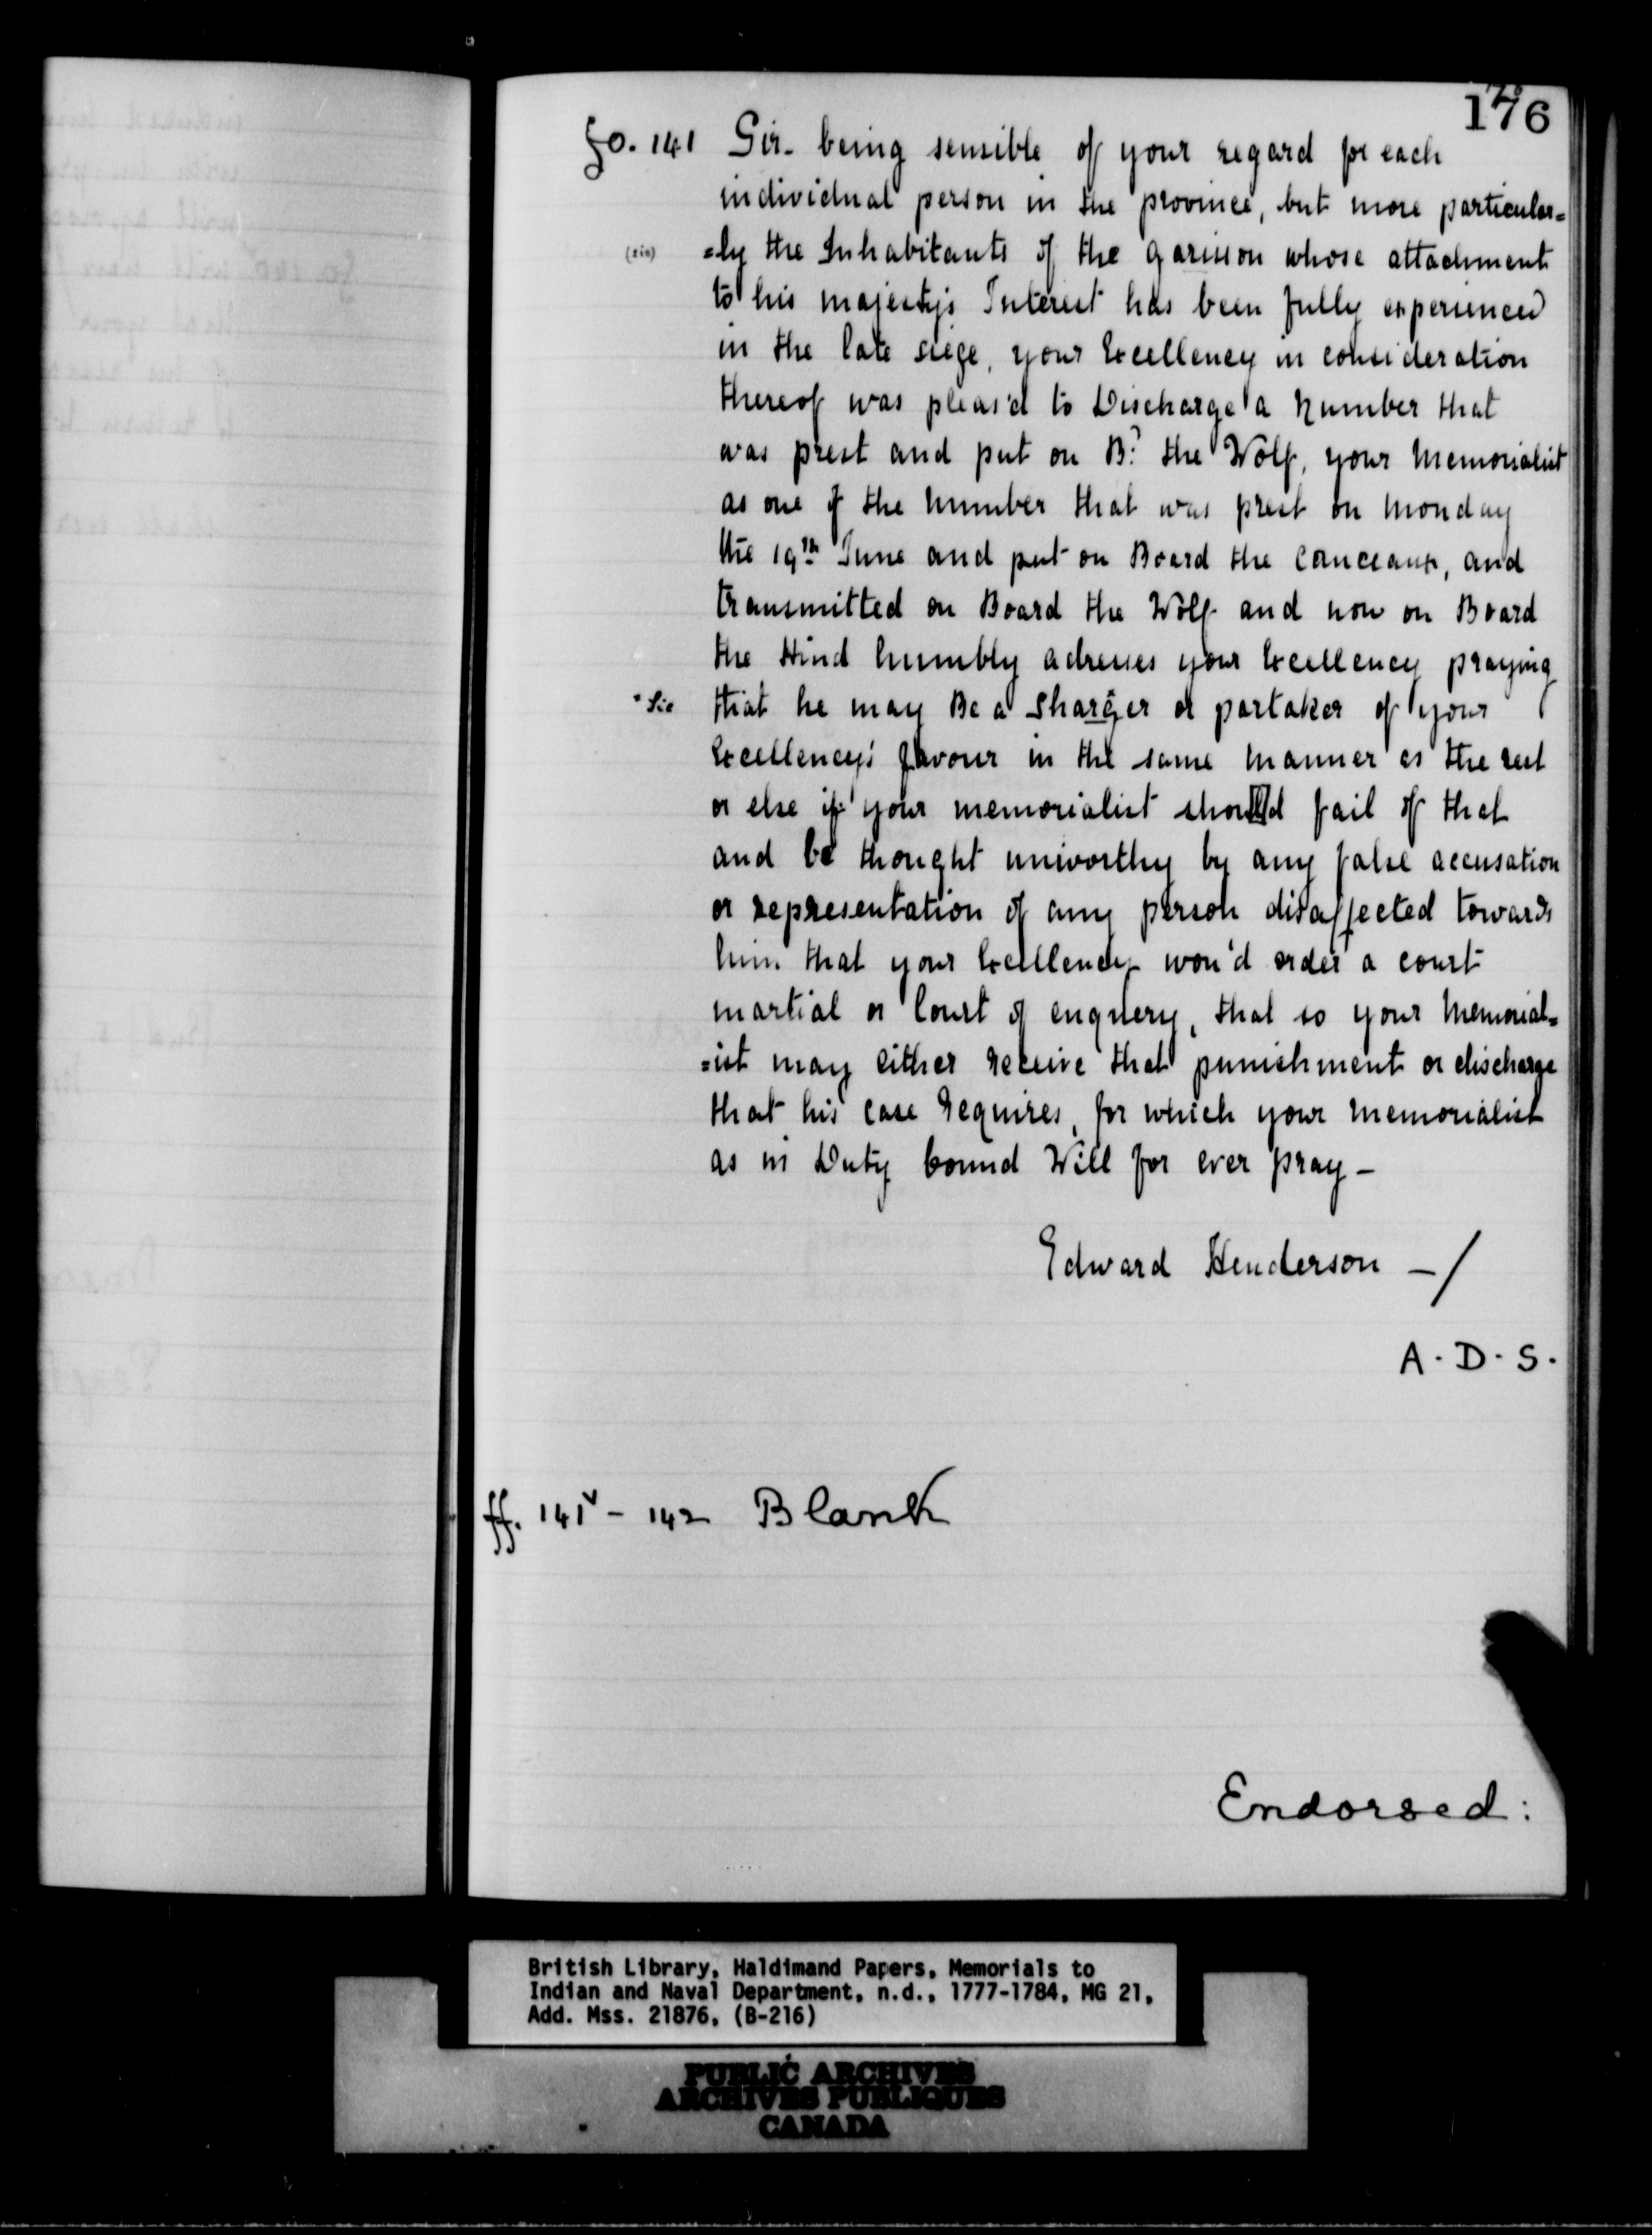 176
fo. 141 Sir. being sensible of your regard for each
individual person in the province, but more particular=
(sic) =ly the Inhabitants of the garisson whose attachment
to his majesty's Interest has been fully experienced
in the late siege, your Excellency in consideration
thereof was pleas'd to Discharge a Number that
was prest and put on Bd the Wolf, your Memorialist
as one of the Number that was prest on Monday
the 19th June and put on Board the Canceaux, and
transmitted on Board the Wolf and now on Board
the Hind humbly adresses your Excellency praying
* Sic that he may Be a Sharger or partaker of your
Excellency's favour in the same Manner as the rest
or else if your memorialist should fail of that
and be thought unworthy by any false accusation
or representation of any person disaffected towards
him that your Excellency wou'd order a court
martial or Court of enquery, that so your Memorial=
=ist may either receive that punishment or discharge
that his case requires, for which your Memorialist
as in Duty bound Will for ever pray -
Edward Henderson -/
A. D. S.
ff. 141v - 142 Blank
Endorsed:
British Library, Haldimand Papers, Memorials to
Indian and Naval Department, n.d., 1777-1784, MG 21,
Add. Mss. 21876, (B-216)
PUBLIC ARCHIVES
ARCHIVES PUBLIQUES
CANADA